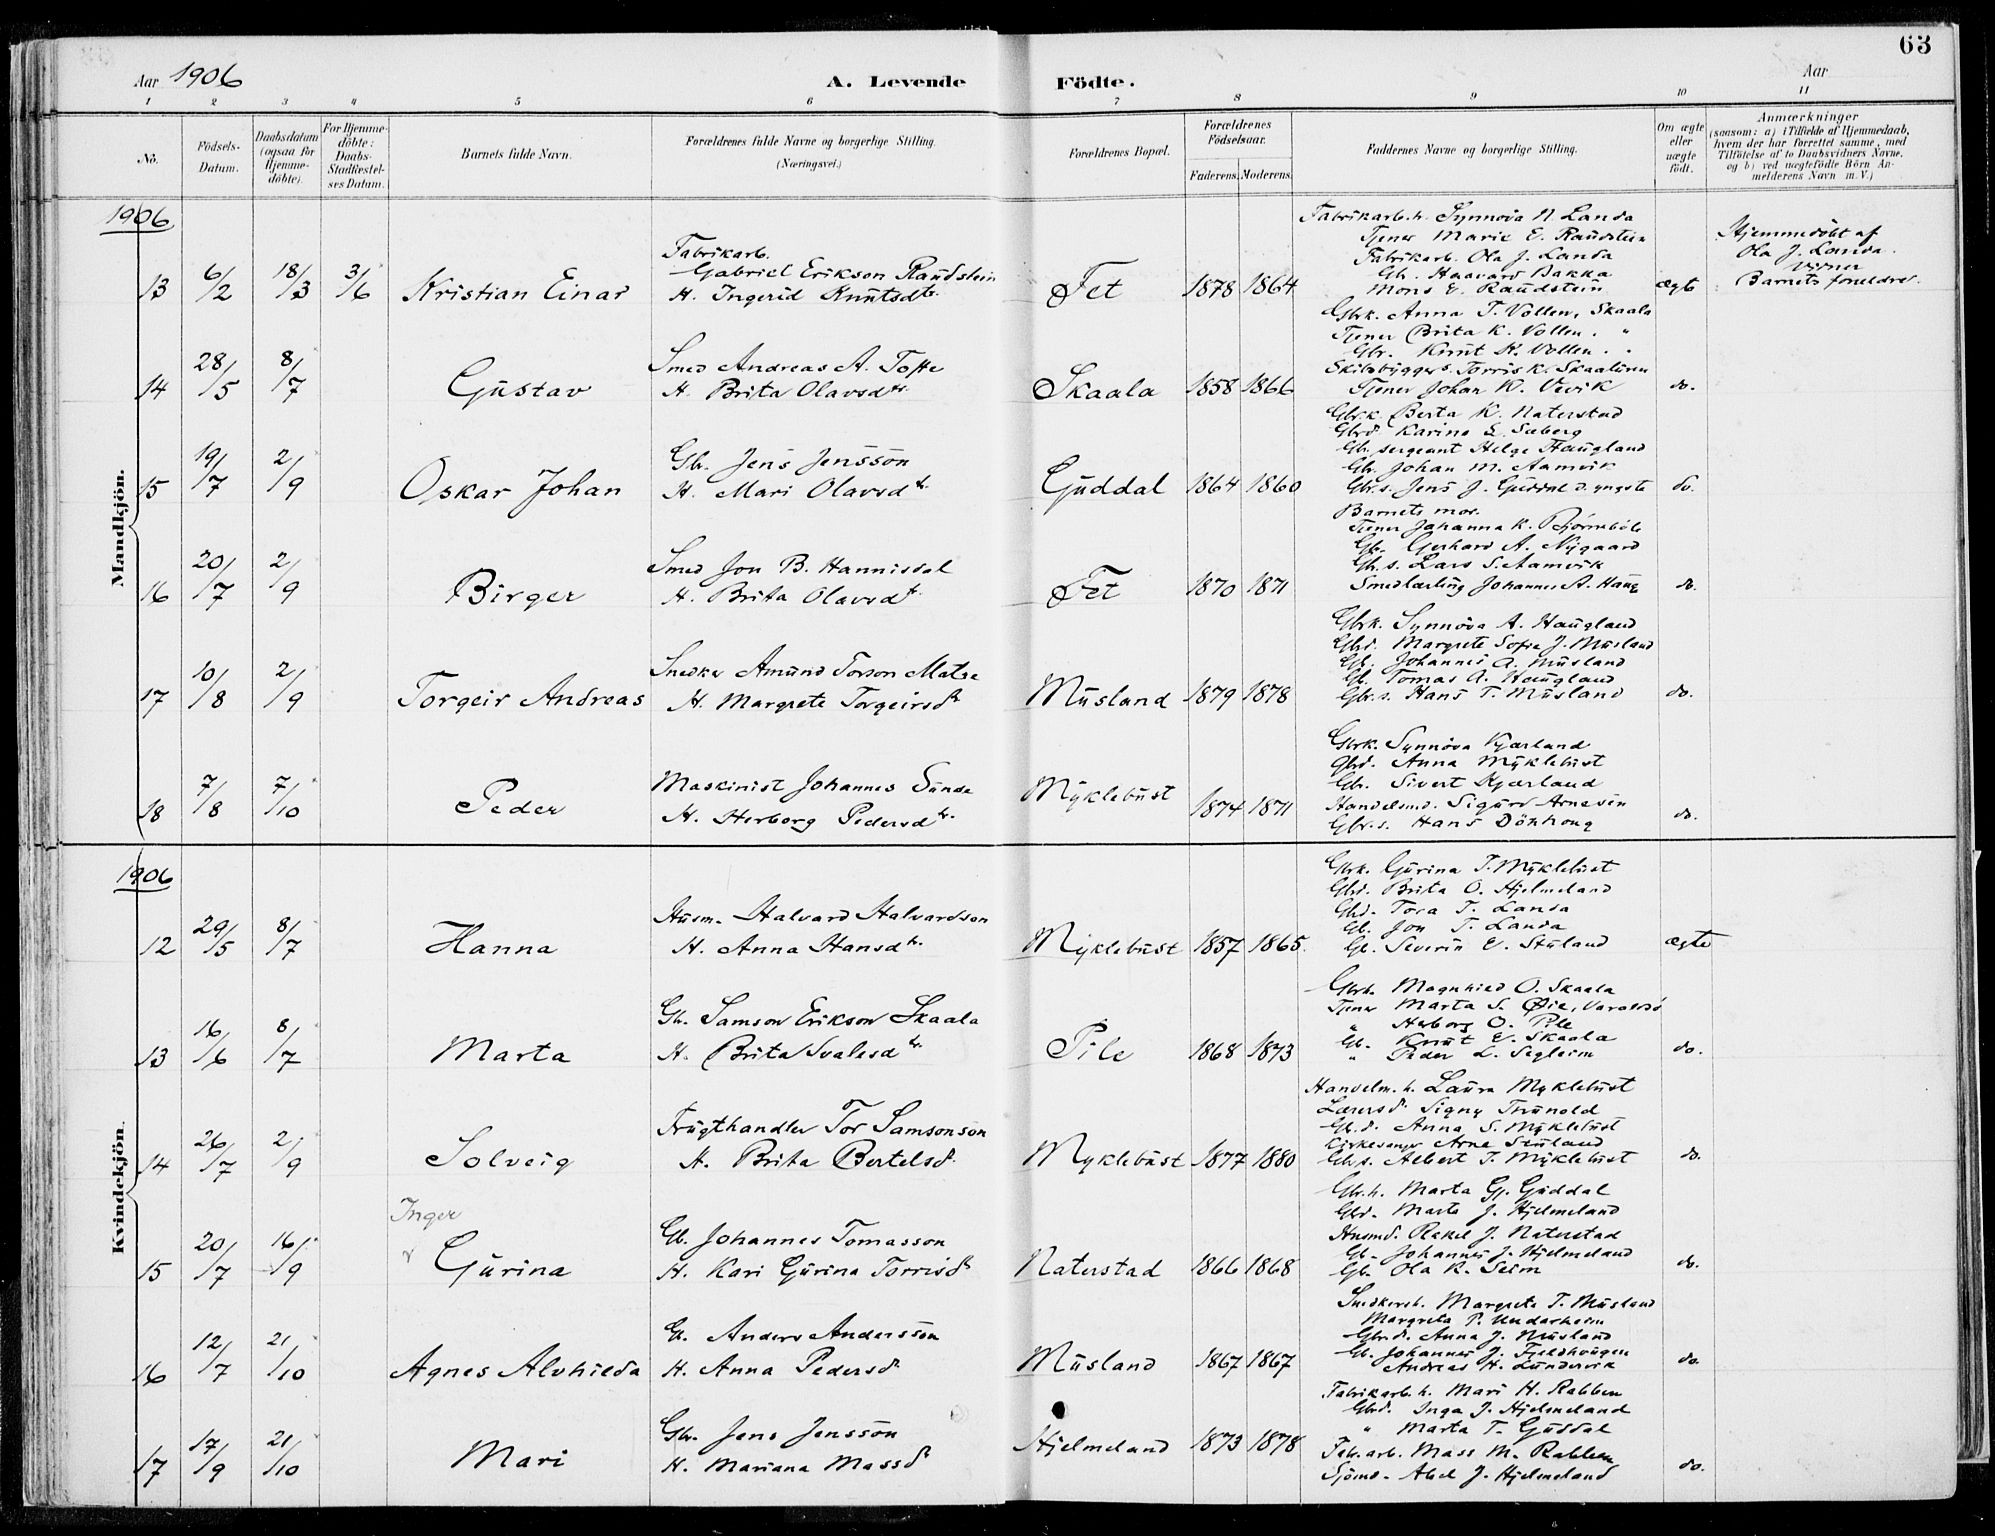 63
Aar 1906
A. Levende Födte.
Aar
1 2 3 4 5 6 7 8 9 10 11
No.
Födsels-
Datum.
Daabsdatum
(ogsaa for
Hjemme-
döbte).
For Hjemme-
döbte:
Daabs-
Stadfæstel-
ses Datum.
Barnets fulde Navn.
Forældrenes fulde Navne og borgerlige Stilling.
(Næringsvei.)
Forældrenes Bopæl.
Forældrenes
Födselsaar.
Faderens. Moderens.
Faddernes Navne og borgerlige Stilling.
Om ægte
eller
uægte
födt.
Anmærkninger
(saasom: a) i Tilfælde af Hjemmedaab,
hvem der har forrettet samme, med
Tilföielse af to Daabsvidners Navne,
og b) ved uægtefödte Börn An-
melderens Navn m.V.)
Mandkjön.
1906
13 6/2 18/3 3/6 Kristian Einar
Fabrikarb.
Gabriel Erikson Raudstein
H. Ingerid Knutsdtr.
Fet 1878 1864
Fabrikarb. h. Synnöva N. Landa
Tjener Marie E. Raudstein
Fabrikarb. Ola J. Landa
Gb. Haavard Bakka
Mons E. Raudstein
ægte
Hjemmedöbt af
Ola J. Landa.
Vidner
Barnets foreldre.
14 28/5 8/7 Gustav
Smed Andreas A. Tofte
H. Brita Olavsdtr.
Skaala 1858 1866
Gbrk. Anna T. Vollen, Skaala
Tjener Brita K. Vollen. "
Gbr. Knut K. Vollen. "
Skibsbygger s. Torris K. Skaalnes
Tjener Johan K. Vevik
do.
15 19/7 2/9 Oskar Johan
Gbr. Jens Jensson
H. Mari Olavsdtr.
Guddal 1864 1860
Gbr.k. Berta K. Naterstad
Gbrd. Karina L. Sæberg
Gbr. sergeant Helge Haugland
Gbr. Johan M. Aamvik
Gbr.s. Jens J. Guddal d. yngste
do.
16 20/7 2/9 Birger
Smed Jon B. Hannisdal
H. Brita Olavsdtr.
Fet 1870 1871
Barnets mor.
Tjener Johanna K. Björneböle
Gb. Gerhard A. Nygaard
Gb.s. Lars S. Aamvik
Smedlærling Johannes A. Haug
do.
17 10/8 2/9 Torgeir Andreas
Snedker Amund Torson Matre
H. Margrete Torgeirsdtr.
Musland 1879 1878
Gbrk. Synnöva A. Haugland
Gbrd. Margrete Sofie J. Musland
Gb. Johannes A. Musland
Gb. Tomas A. Haugland
Gbr.s. Hans T. Musland
do.
18 7/8 7/10 Peder
Maskinist Johannes Sunde
H. Herborg Pedersdtr.
Myklebust 1874 1871
Gbrk. Synnöva Kjærland
Gbrd. Anna Myklebust
Gbr. Sivert Kjærland
Handelsmd. Sigurd Arnesen
Gbr.s. Hans Dönhoug
do.
Kvindekjön.
1906
12 29/5 8/7 Hanna
Husm. Halvard Halvardson
H. Anna Hansdtr.
Myklebust 1857 1865.
Gbrk. Gurina T. Myklebust
Gbrd. Brita O. Hjelmeland
Gbrd. Tora T. Landa
Gb. Jon T. Landa
Gb. Severin E. Stuland
ægte
13 16/6 8/7 Marta
Gb. Samson Erikson Skaala
H. Brita Svalesdtr.
Pile 1868 1873
Gbrh. Magnhild O. Skaala
Tjener Marta S. Øie, Varaldsö
" Herborg O. Pile
Gb. Knut E. Skaala
" Peder L. Segleim
do.
14 26/7 2/9 Solveig
Frugthandler Tor Samsonson
H. Brita Bertelsd.
Myklebust 1877 1880
Handelm. h. Laura Myklebust
Lærersd. Signy Trunold
Gb.d. Anna S. Myklebust
Kirkesanger Arne Stuland
Gbr.s. Albert T. Myklebust
do.
15 20/7 16/9 Inger
v Gurina
Gb. Johannes Tomasson
H. Kari Gurina Torrisdtr
Naterstad 1866 1868
Gbr.h. Marta Gj. Guddal
Gbrd. Marta J. Hjelmeland
Husmd. Rakel J. Naterstad
Gb. Johannes J. Hjelmeland
Gb. Ola K. Seim
do.
16 12/7 21/10 Agnes Alvhilda
Gb. Anders Andersson
H. Anna Pedersd.
Musland 1867 1867
Snedkersh. Margrete T. Musland
Margreta P. Undarheim
Gbrd. Anna J. Musland
Gb. Johannes J. Fjeldhaugen
Andreas H. Lundervik
do.
17 17/9 21/10 Mari
Gbr. Jens Jensson
H. Mariana Massdtr
Hjelmeland 1873 1878
Fabrikarb. h. Mari H. Rabben
Gbrd. Inga J. Hjelmeland
" Marta T. Guddal
Fabr.arb. Mass M. Rabben
Sjömd. Abel J. Hjelmeland
do.